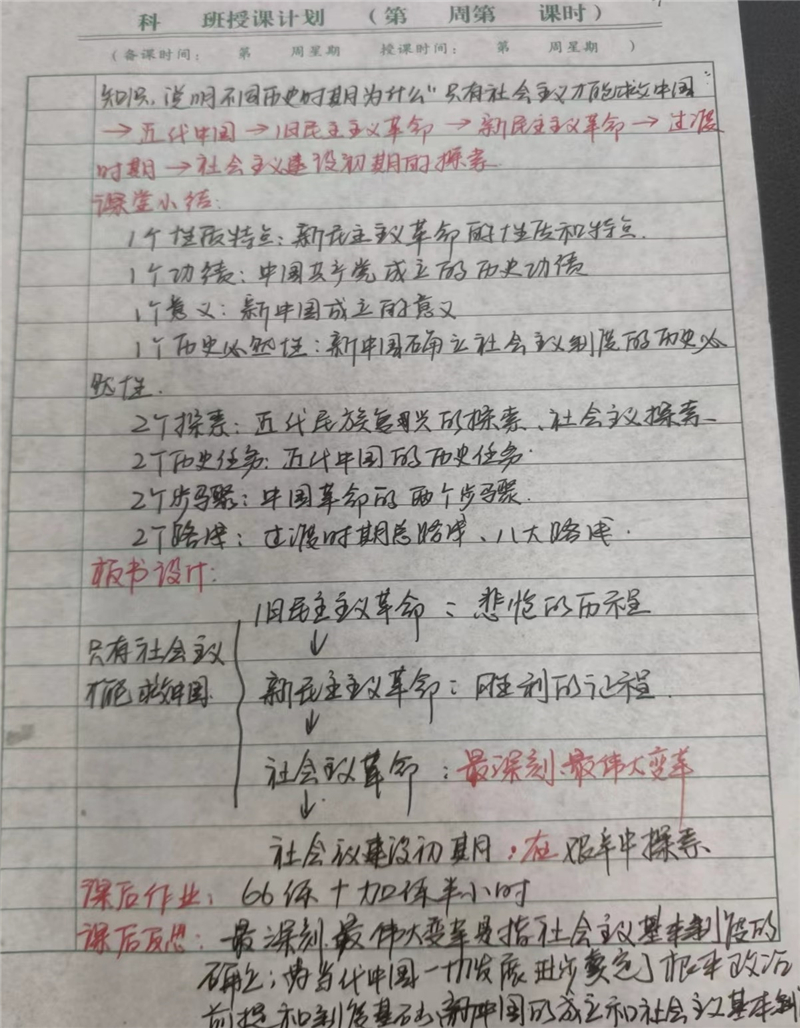 科 班授课计划 （第 周第 课时）
（备课时间： 第 周星期 授课时间： 第 周星期 ）
知识，说明不同历史时期为什么“只有社会主义才能救中国”
→近代中国→旧民主主义革命→新民主主义革命→过渡
时期→社会主义建设初期的探索
课堂小结：
1个性质特点：新民主主义革命的性质和特点
1个功绩：中国共产党成立的历史功绩
1个意义：新中国成立的意义
1个历史必然性：新中国确立社会主义制度的历史必
然性.
2个探索：近代民族复兴的探索、社会主义探索
2个历史任务：近代中国的历史任务
2个步骤：中国革命的两个步骤.
2个路线：过渡时期总路线、八大路线.
板书设计：
旧民主主义革命：悲怆的历程
↓
只有社会主义
才能救中国
新民主主义革命：胜利的征程
↓
社会主义革命：最深刻、最伟大变革
↓
社会主义建设初期：在艰辛中探索
课后作业：66练+加练半小时
课后反思：最深刻、最伟大变革是指社会主义基本制度的
确立；为当代中国一切发展进步奠定了根本政治
前提和制度基础，新中国的成立和社会主义基本制